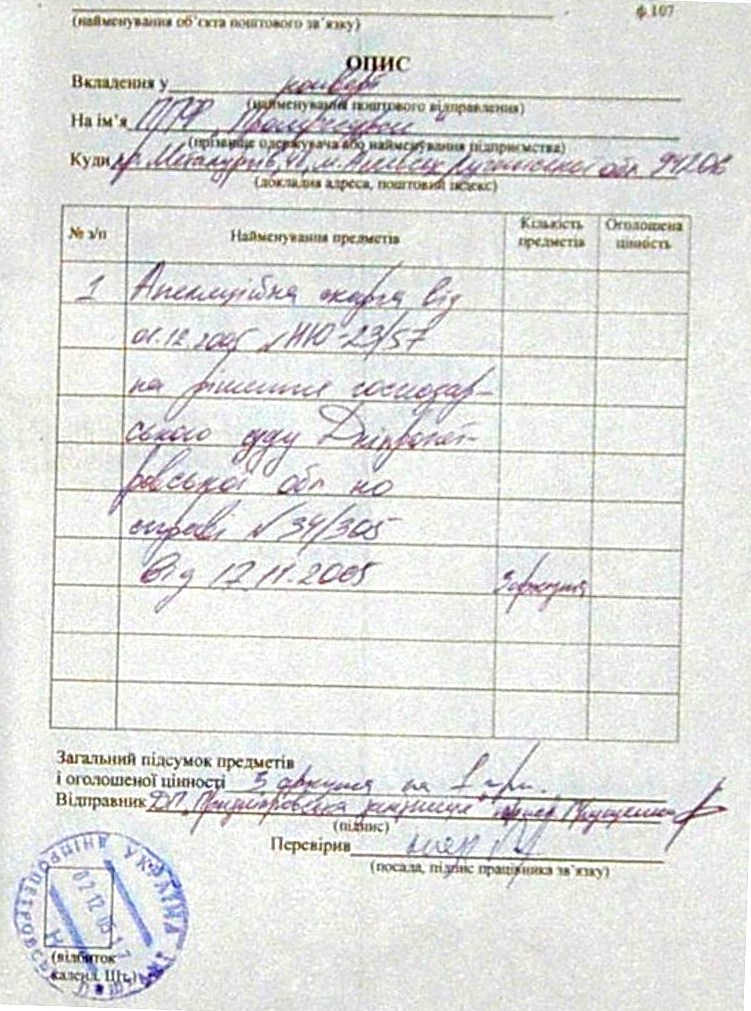 ф.107
(найменування об'єкта поштового зв'язку)
ОПИС
Вкладення у конверт
(найменування поштового відправлення)
На ім'я ППФ „
(прізвище одержувача або найменування підприємства)
Куди пр. Металургів, м. Алчевськ Луганської обл 94206
(докладна адреса, поштовий індекс)
№ з/п Найменування предметів Кількість предметів Оголошена цінність
1 Апеляційна скарга від
01.12.2005 №НЮ-23/57
на рішення господар-
ського суду Дніпропет-
ровської обл по
справі №34/305
від 17.11.2005 3 аркушя
Загальний підсумок предметів
і оголошеної цінності 3 аркушя на 1 грн.
Відправник ДП „Придніпровська залізниця"
(підпис)
Перевірив
(посада, підпис працівника зв'язку)
УКРАЇНА
02 12 05
(відбиток
календ. Шт.)